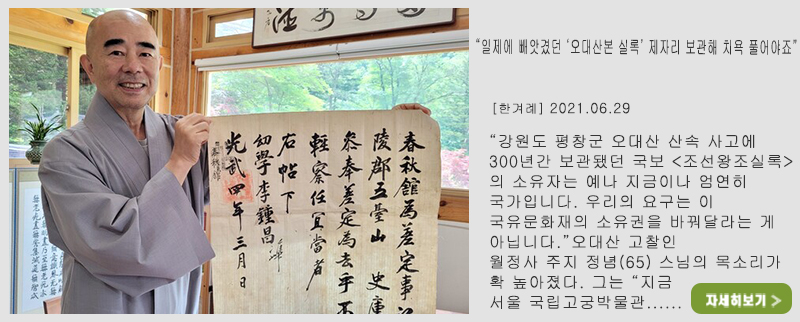 “일제에 빼앗겼던 ‘오대산본 실록’ 제자리 보관해 치욕 풀어야죠”
[한겨레] 2021.06.29
“강원도 평창군 오대산 산속 사고에
300년간 보관됐던 국보 <조선왕조실록>
의 소유자는 예나 지금이나 엄연히
국가입니다. 우리의 요구는 이
국유문화재의 소유권을 바꿔달라는 게
아닙니다.”오대산 고찰인
월정사 주지 정념(65) 스님의 목소리가
확 높아졌다. 그는 “지금
서울 국립고궁박물관......
자세히보기 >
春秋館爲差定事
陵郡五臺山 史庫
參奉差定爲去乎
輕察任宜當者
右帖下
幼學李鍾昌
光武四年三月日